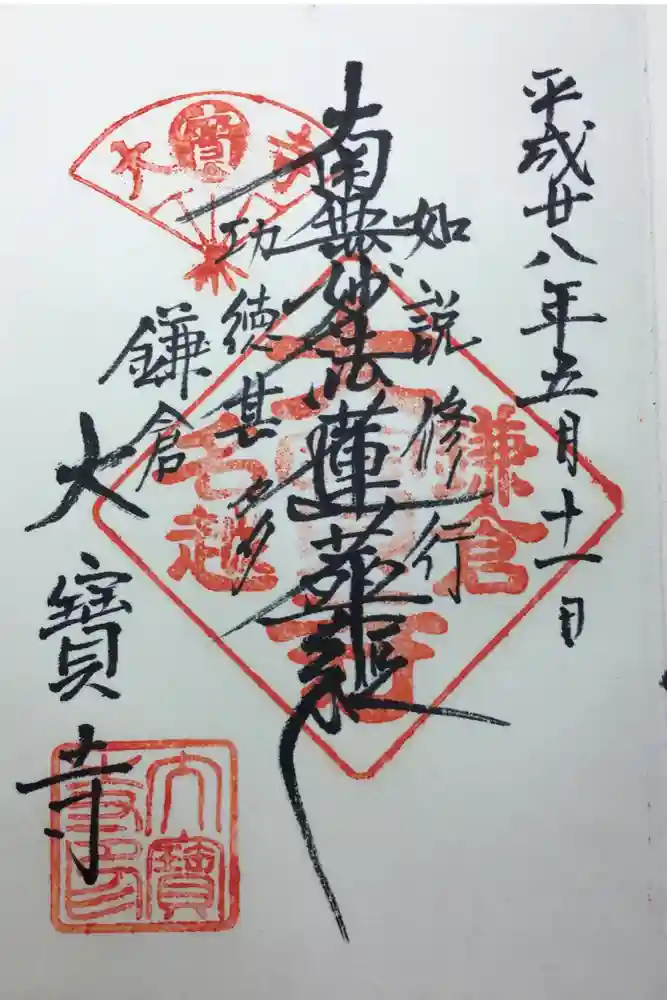 平成廿八年五月十一日
如説修行
南無妙法蓮華経
功徳甚多
鎌倉
大寶寺
寶
鎌倉
名越
大寶
寺印